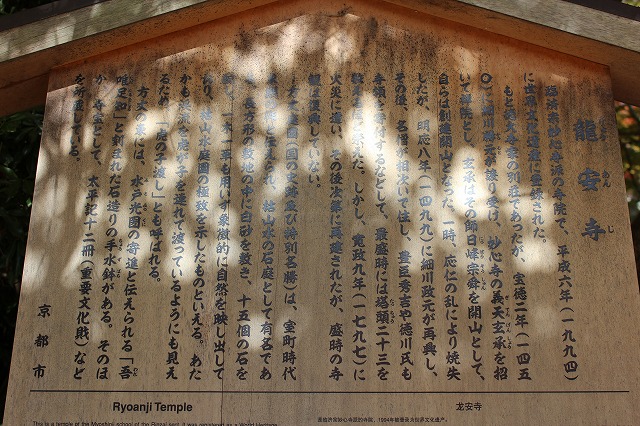 龍安寺
りょうあんじ
臨済宗妙心寺派の寺院で、平成六年(一九九四)
に世界文化遺産に登録された。
もと徳大寺家の別荘であったが、宝徳二年(一四五
〇)細川勝元が譲り受け、妙心寺の義天玄承を招
いて禅院とし、玄承はその師日峰宗舜を開山として、
自らは創建開山となった。一時、応仁の乱により焼失
したが、明応八年(一四九九)に細川政元が再興し、
その後、名僧が相次いで住し、豊臣秀吉や徳川氏も
寺領を寄付するなどして、最盛時には塔頭二十三を
数えるに至った。しかし、寛政九年(一七九七)に
火災に遭い、その後次第に再建されたが、盛時の寺
観は復興していない。
方丈庭園(国の史跡及び特別名勝)は、室町時代
と伝えられ、枯山水の石庭として有名であ
る。長方形の敷地の中に白砂を敷き、十五個の石を
一木一草も用いず象徴的に自然を映し出して
おり、枯山水庭園の極致を示したものといえる。あた
かも渓流を虎が子を連れて渡っているようにも見え
るため「虎の子渡し」とも呼ばれる。
方丈の東には、水戸光圀の寄進と伝えられる「吾
唯足知」と刻まれた石造りの手水鉢がある。そのほ
か、寺宝として、太平記十二冊(重要文化財)など
を所蔵している。
京都市
Ryoanji Temple
龙安寺
This is a temple of the Myoshinji school of the Rinzai sect. It was registered as a World Heritage
是临济宗妙心寺派的寺院，1994年被登录为世界文化遗产。